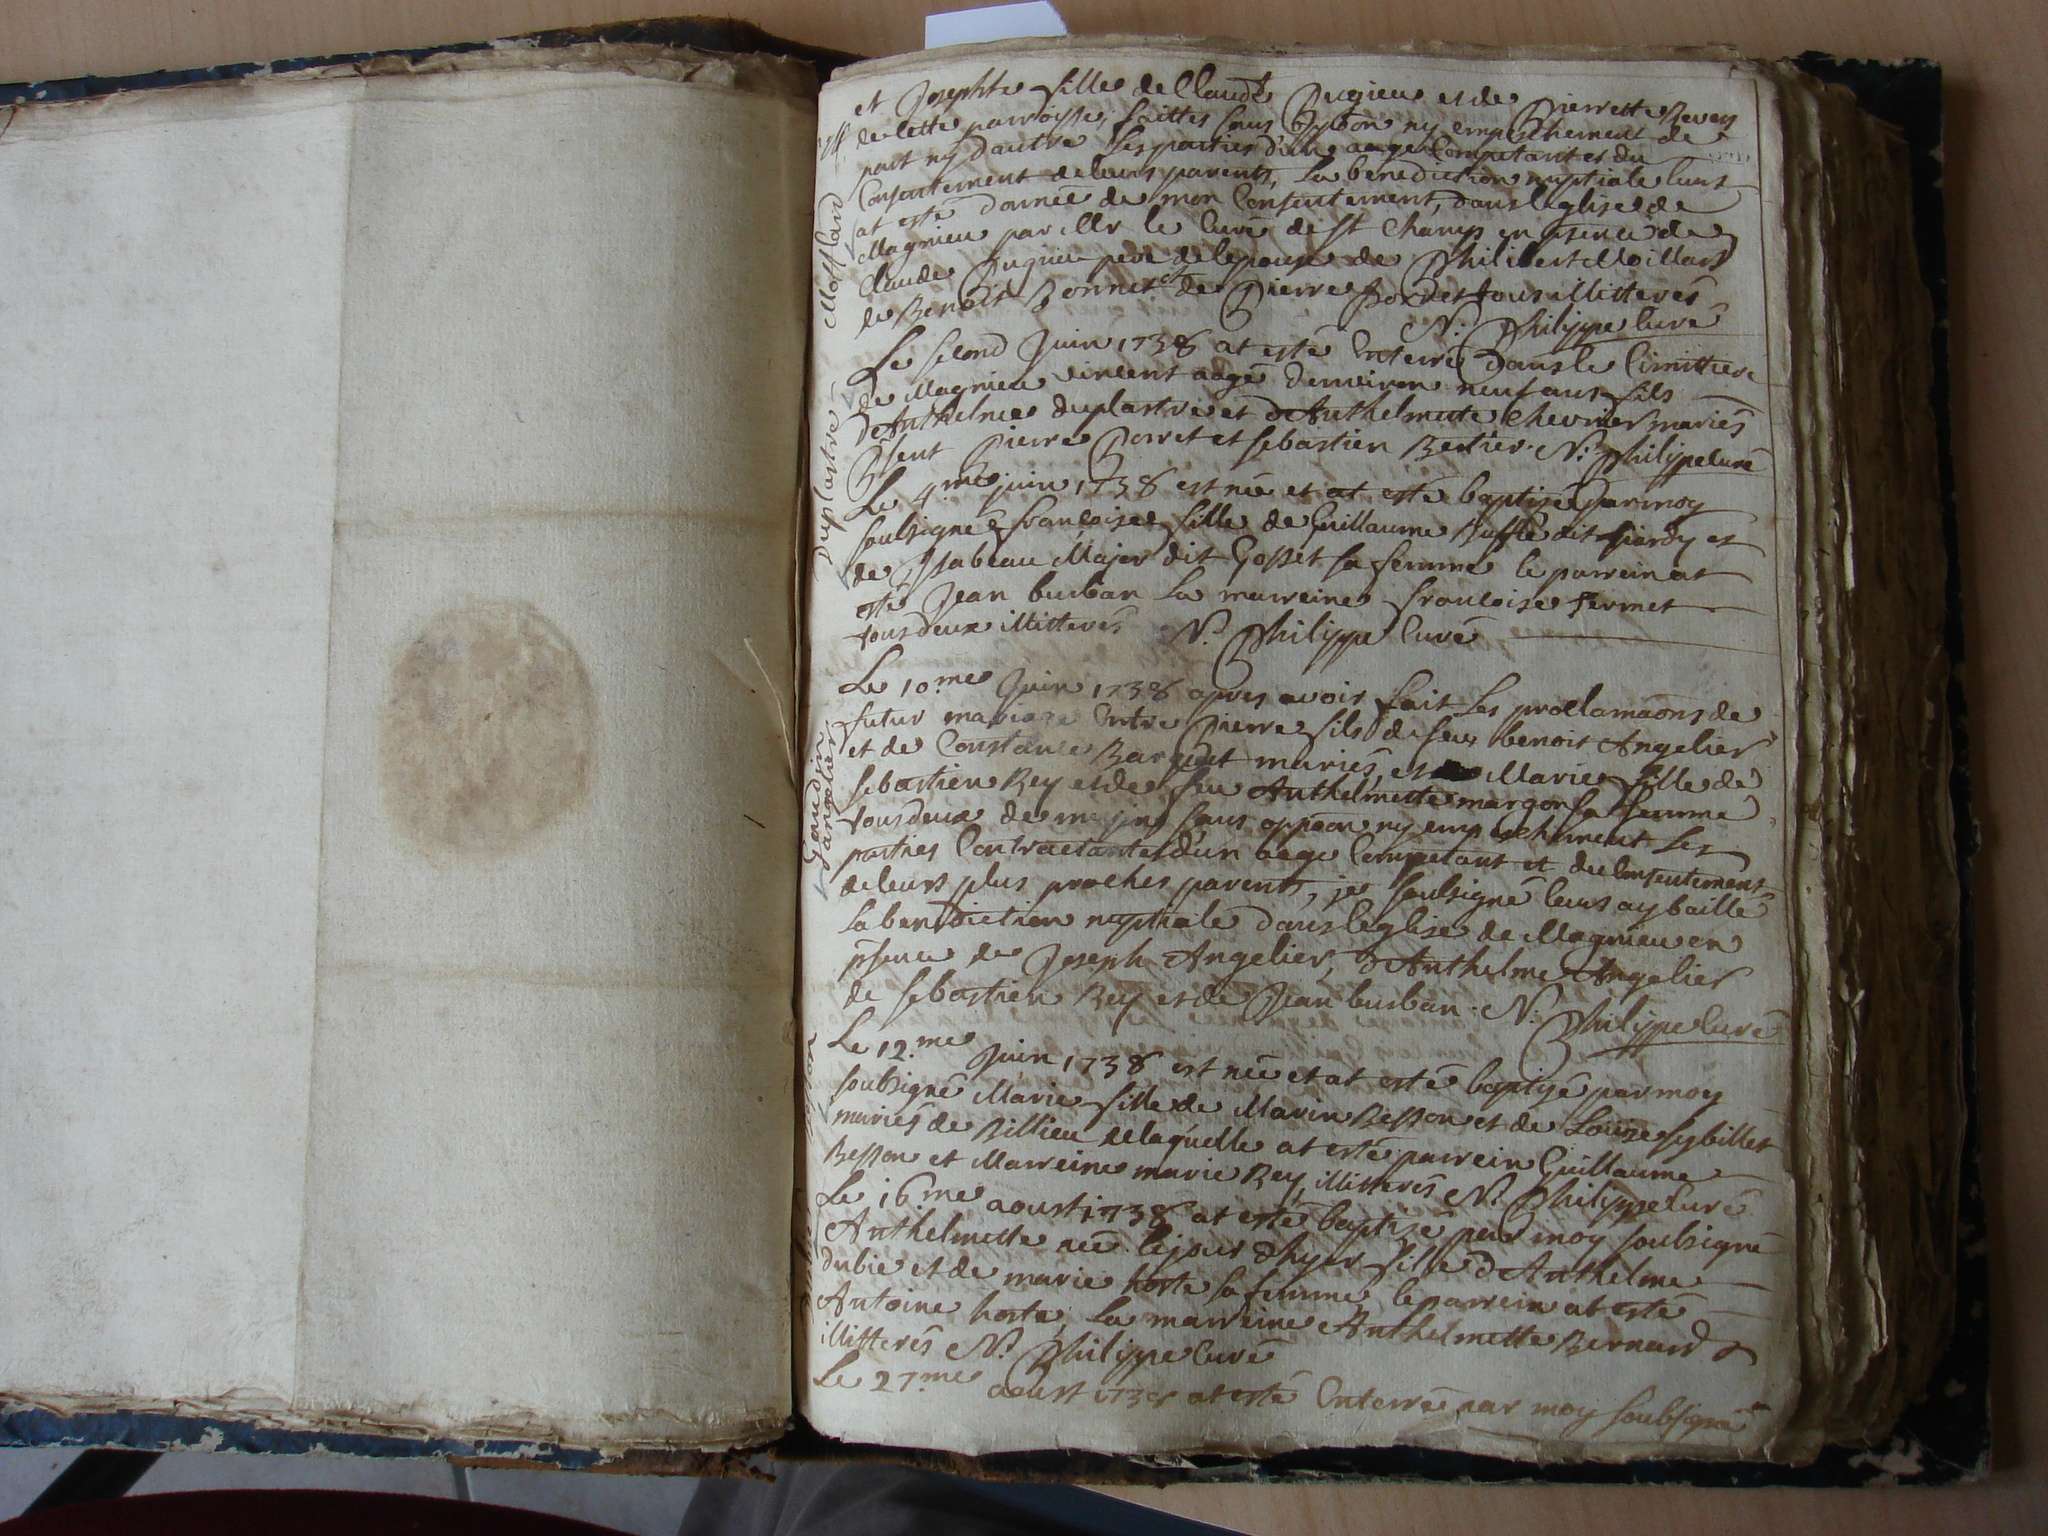 et Josephte fille de Claude Pugieu et de Pierrette Revey
de Cette parroisse, faittes sans oppõn ny empeschement de
part ny d'autre les parties d'un aage Competant et du
Consentement de leurs parents, la benediction nuptiale leurs
at esté donnée de mon Consentement, dans l'eglise de
Magnieu par Mr le Curé de St Champ en psence de
Claude Pugieu pere de l'epouse de Philibert Moillard
de Benoit Bonnet et de Pierre Bordet tous illitterés
N. Philippe Curé
Moillard
Le second Juin 1738 at esté Enterré dans le Cimittiere
de Magnieu vincent aagé d'environ neuf ans fils
d'Anthelme duplastre et d'Anthelmette Chevrier mariés
psent Pierre Porret et sebastien Bertier. N. Philippe Curé
Duplastre
Le 4.me juin 1738 est née et at esté baptisé par moy
soubsigné françoise fille de Guillaume Buffle dit Hiardy et
de Isabeau Major dit Gosset sa femme le parrein at
esté Jean burban la marreine françoise fermet
tous deux illitterés N. Philippe Curé
Le 10.me Juin 1738 apres avoir fait les proclamãons de
futur mariage Entre Pierre fils de feu benoit Angelier
et de Constance Barquet mariés, et Marie fille de
sebastien Rey et de feu Anthelmette margon sa femme
tous deux de sans oppõon ny empeschement les
parties Contractantes d'un aage Competant et du Consentement
de leurs plus proches parents, je soubsigné leurs ay baillé
la benediction nuptiale dans l'eglise de Magnieu en
psence de Joseph Angelier, d'Anthelme Angelier
de sebastien Rey et de Jean burban. N. Philippe Curé
angelier
Le 12.me Juin 1738 est née et at esté baptisé par moy
soubsigné Marie fille de Marin Besson et de Louise sybillet
mariés de Billieu de laquelle at esté parrein Guillaume
Besson et Marreine marie Rey illitterés N. Philippe Curé
Le 16.me aoust 1738 at esté baptisé par moy soubsigné
Anthelmette née le jour d'hyer fille d'Anthelme
dubie et de marie hoste sa femme, le parrein at esté
Antoine hoste, la marreine Anthelmette Bernard
illitterés N. Philippe Curé
Le 27.me aoust 1738 at esté Enterré par moy soubsigné